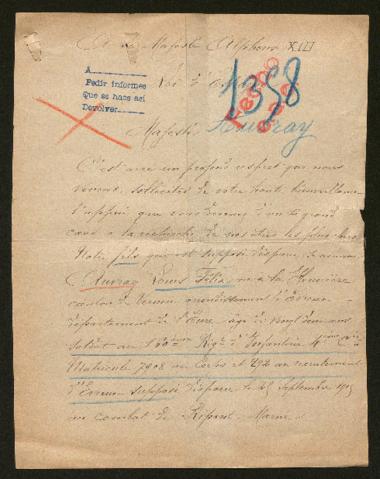 A sa Majesté Alphonse XIII
Roi d'Espagne
A
Pedir informes
Que se hace así
Devolver
1358
Auvray
Majesté
C'est avec un profond respect que nous
venons solliciter de votre haute bienveillance
l'appui que vous donnez d'un si grand
cœur à la recherche de nos êtres les plus chers
Notre fils que est supposé disparu, se nomme
Auvray Louis Félix né à la
canton de Vernon arrondissement d'Evreux
département de l'Eure, âgé de vingt deux ans
soldat au Régt d'Infanterie
Matricule 7908 au Corps et 292 au recrutement
d'Evreux supposé disparu le 25 Septembre 1915
au combat de Ripont - Marne